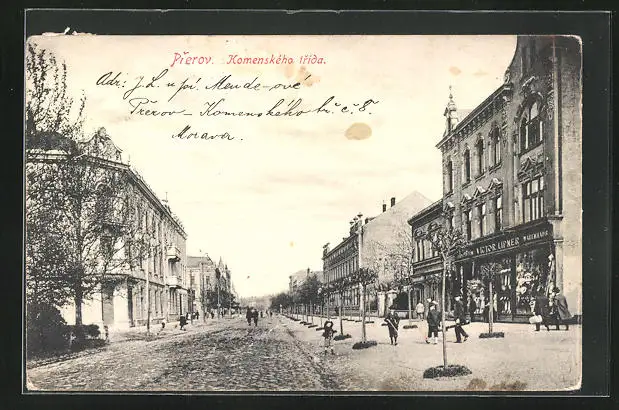 Přerov. Komenského třída.
Adr: J. L. u pí. Mende-ové
Přerov - Komenského tř. č. 8.
Morava.
VICTOR LIPNER WARENHAUS